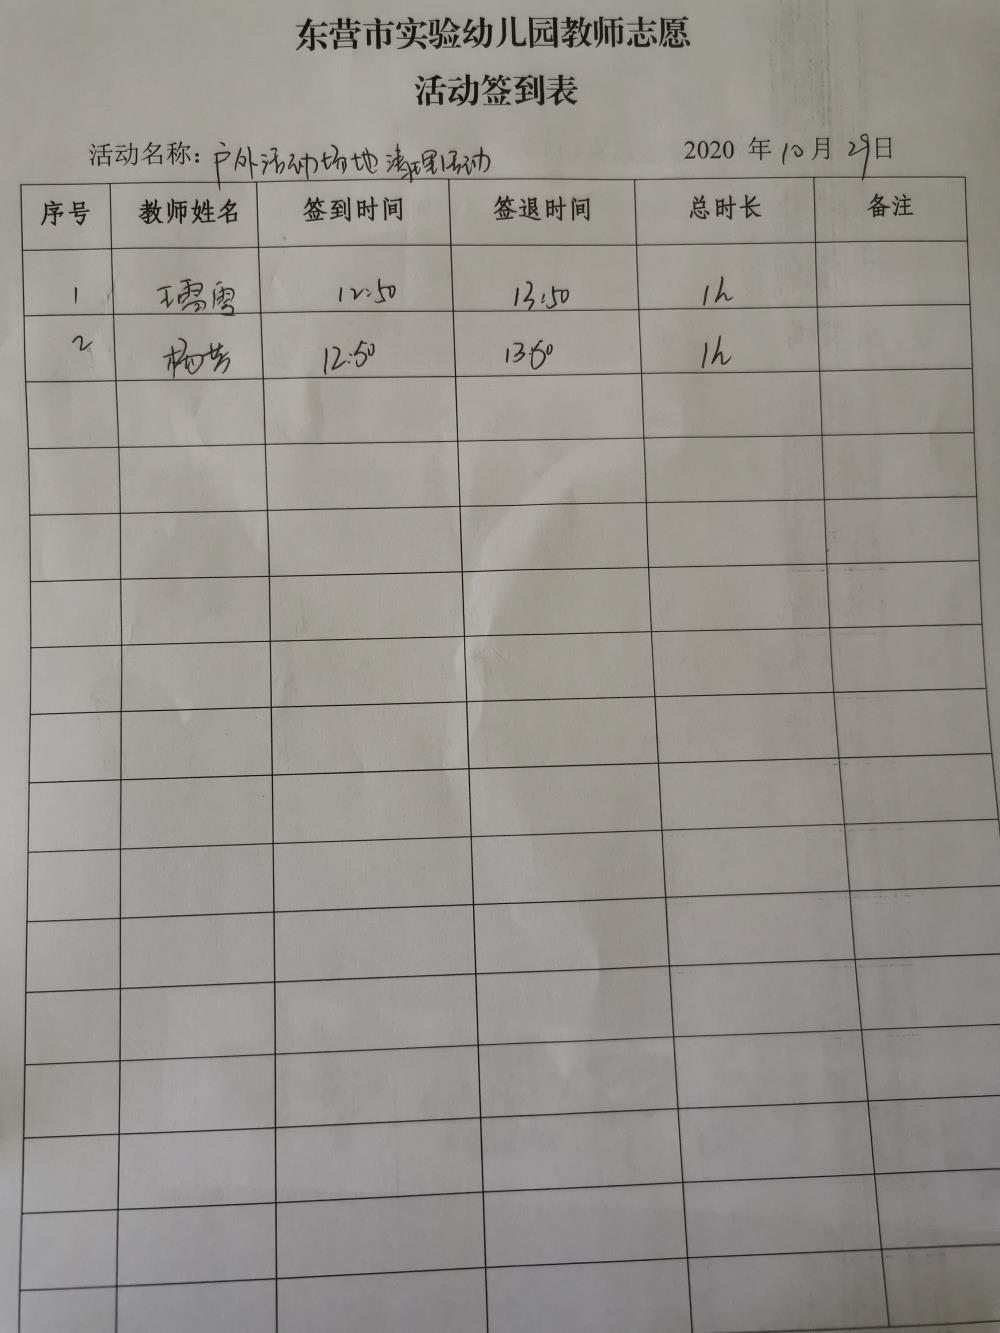 东营市实验幼儿园教师志愿
活动签到表
活动名称：户外活动场地清理活动 2020 年 10 月 29 日
序号 教师姓名 签到时间 签退时间 总时长 备注
1 王雪雪 12:50 13:50 1h
2 杨芳 12:50 13:50 1h